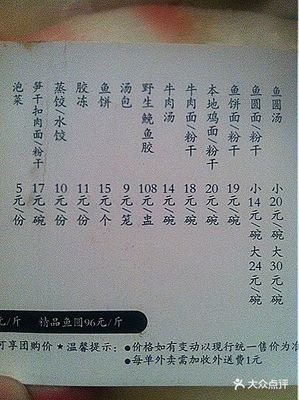 鱼圆汤 小20元/碗 大30元/碗
鱼圆面/粉干 小14元/碗 大24元/碗
鱼饼面/粉干 19元/碗
本地鸡面/粉干 20元/碗
牛肉面/粉干 18元/碗
牛肉汤 14元/碗
野生鮸鱼胶 108元/盅
汤包 9元/笼
鱼饼 15元/个
胶冻 11元/份
蒸饺/水饺 10元/份
笋干扣肉面/粉干 17元/碗
泡菜 5元/份
元/斤 精品鱼圆96元/斤
可享团购价 ★温馨提示：●价格如有变动以现行统一售价为准
●每单外卖需加收外送费1元
大众点评